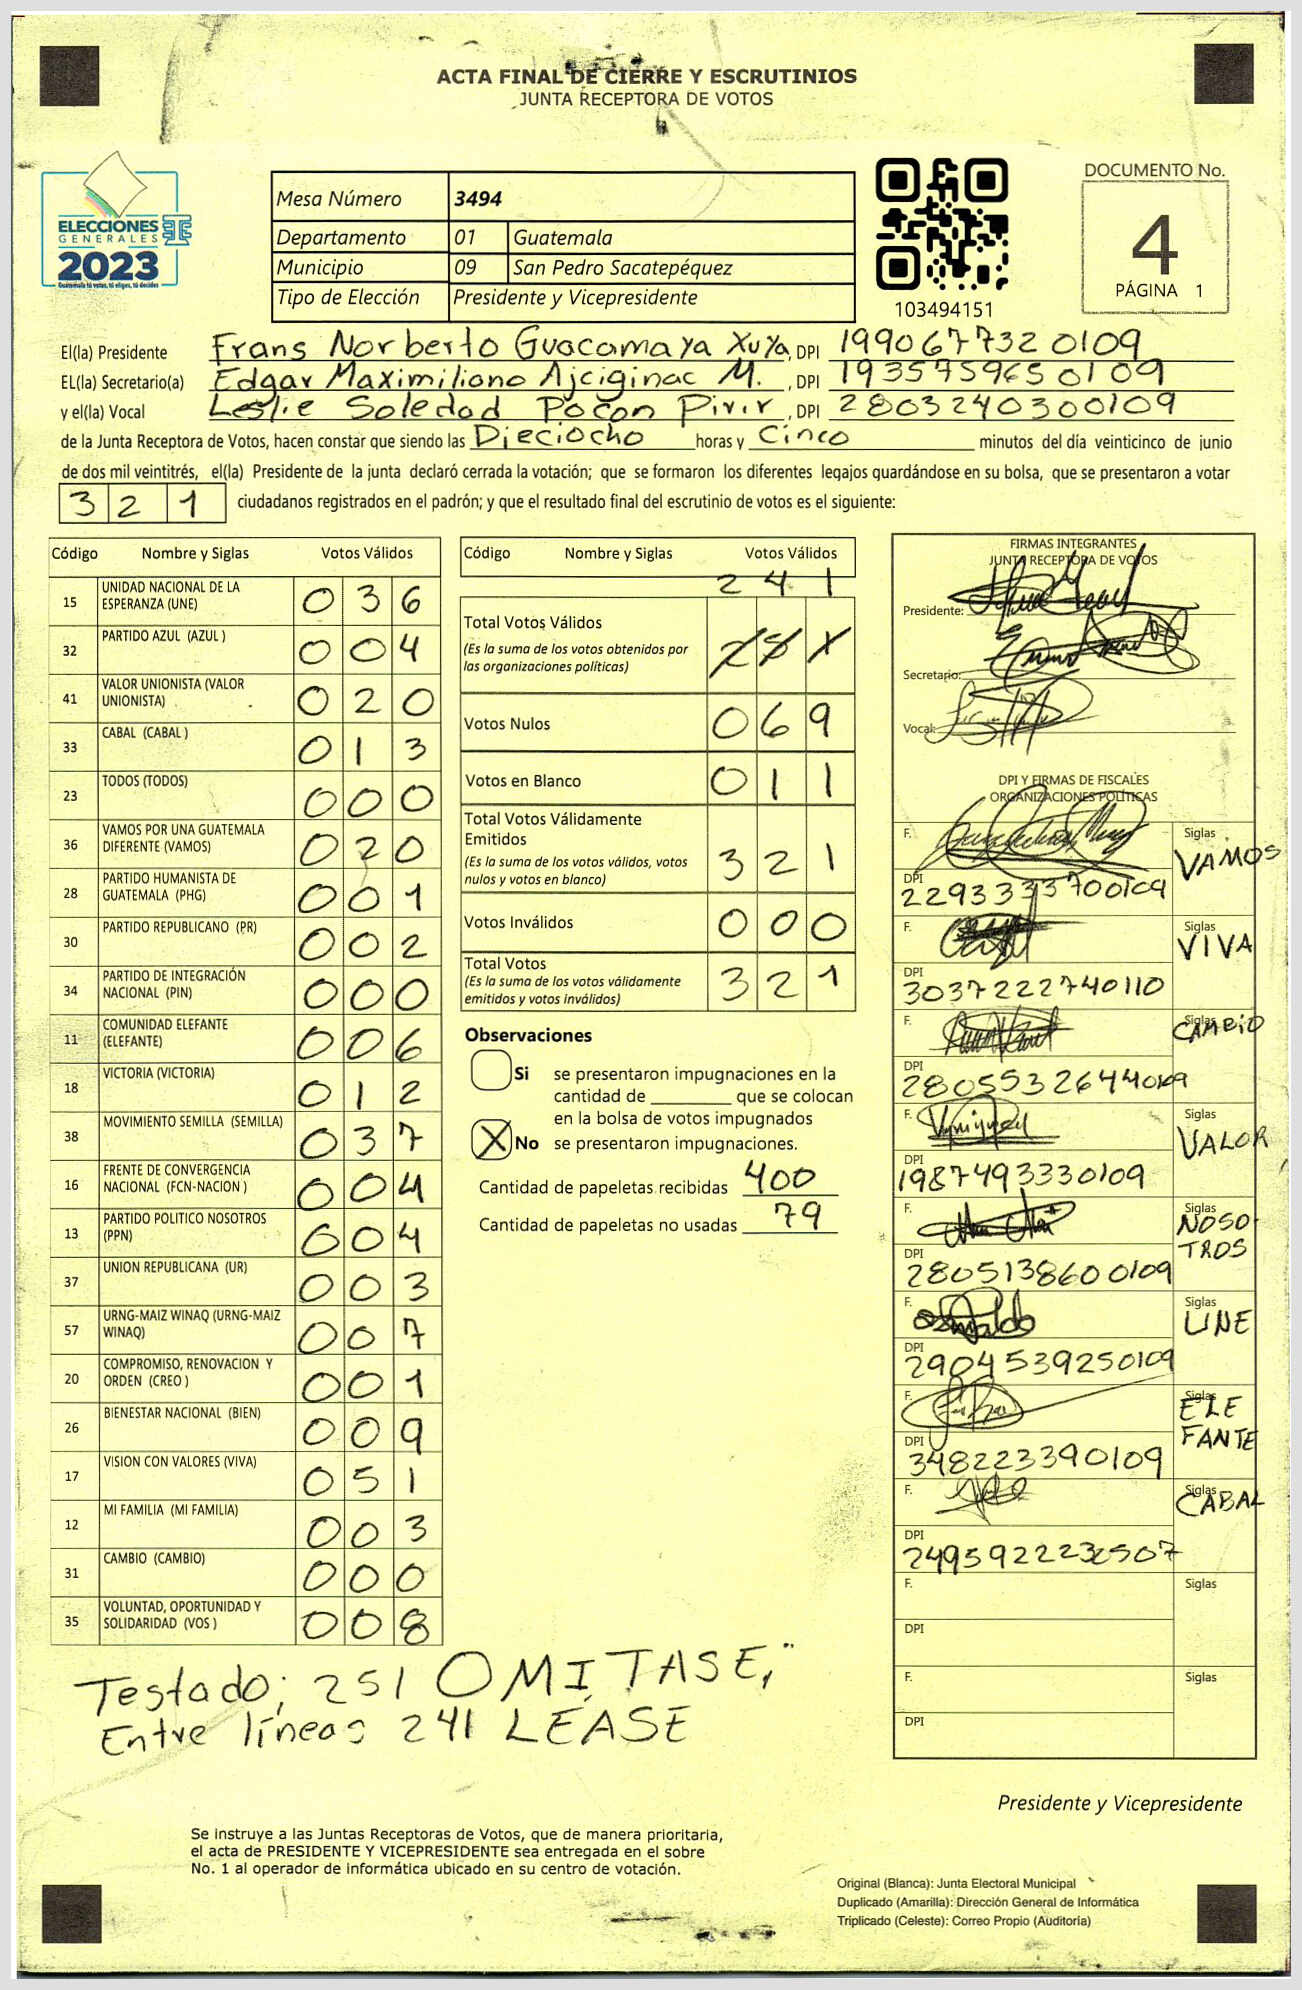 ACTA FINAL DE CIERRE Y ESCRUTINIOS
JUNTA RECEPTORA DE VOTOS
ELECCIONES
GENERALES
2023
Guatemala tú votas, tú eliges, tú decides
Mesa Número 3494
Departamento 01 Guatemala
Municipio 09 San Pedro Sacatepéquez
Tipo de Elección Presidente y Vicepresidente
103494151
DOCUMENTO No.
4
PÁGINA 1
El(la) Presidente Frans Norberto Guacamaya Xuya, DPI 1990677320109
EL(la) Secretario(a) Edgar Maximiliano Ajciginac M. , DPI 1935759650109
y el(la) Vocal Leslie Soledad Pocon Pirir , DPI 2803240300109
de la Junta Receptora de Votos, hacen constar que siendo las Dieciocho horas y Cinco minutos del día veinticinco de junio
de dos mil veintitrés, el(la) Presidente de la junta declaró cerrada la votación; que se formaron los diferentes legajos guardándose en su bolsa, que se presentaron a votar
321 ciudadanos registrados en el padrón; y que el resultado final del escrutinio de votos es el siguiente:
Código Nombre y Siglas Votos Válidos
15 UNIDAD NACIONAL DE LA ESPERANZA (UNE) 036
32 PARTIDO AZUL (AZUL ) 004
41 VALOR UNIONISTA (VALOR UNIONISTA) 020
33 CABAL (CABAL ) 013
23 TODOS (TODOS) 000
36 VAMOS POR UNA GUATEMALA DIFERENTE (VAMOS) 020
28 PARTIDO HUMANISTA DE GUATEMALA (PHG) 001
30 PARTIDO REPUBLICANO (PR) 002
34 PARTIDO DE INTEGRACIÓN NACIONAL (PIN) 000
11 COMUNIDAD ELEFANTE (ELEFANTE) 006
18 VICTORIA (VICTORIA) 012
38 MOVIMIENTO SEMILLA (SEMILLA) 037
16 FRENTE DE CONVERGENCIA NACIONAL (FCN-NACION ) 004
13 PARTIDO POLITICO NOSOTROS (PPN) 004
37 UNION REPUBLICANA (UR) 003
57 URNG-MAIZ WINAQ (URNG-MAIZ WINAQ) 007
20 COMPROMISO, RENOVACION Y ORDEN (CREO ) 001
26 BIENESTAR NACIONAL (BIEN) 009
17 VISION CON VALORES (VIVA) 051
12 MI FAMILIA (MI FAMILIA) 003
31 CAMBIO (CAMBIO) 000
35 VOLUNTAD, OPORTUNIDAD Y SOLIDARIDAD (VOS ) 008
Testado; 251 OMITASE,
Entre líneas 241 LEASE
Código Nombre y Siglas Votos Válidos
241
Total Votos Válidos 251
(Es la suma de los votos obtenidos por
las organizaciones políticas)
Votos Nulos 069
Votos en Blanco 011
Total Votos Válidamente
Emitidos 321
(Es la suma de los votos válidos, votos
nulos y votos en blanco)
Votos Inválidos 000
Total Votos 321
(Es la suma de los votos válidamente
emitidos y votos inválidos)
Observaciones
Si se presentaron impugnaciones en la
cantidad de ________ que se colocan
en la bolsa de votos impugnados
X No se presentaron impugnaciones.
Cantidad de papeletas recibidas 400
Cantidad de papeletas no usadas 79
FIRMAS INTEGRANTES
JUNTA RECEPTORA DE VOTOS
Presidente:
Secretario:
Vocal:
DPI Y FIRMAS DE FISCALES
ORGANIZACIONES POLÍTICAS
F. Siglas VAMOS
DPI 2293333700109
F. Siglas VIVA
DPI 3037222740110
F. Siglas CAMBIO
DPI 28055326440109
F. Siglas VALOR
DPI 1987493330109
F. Siglas NOSO-
TROS
DPI 2805138600109
F. Oswaldo Siglas UNE
DPI 2904539250109
F. Siglas ELE
FANTE
DPI 348223390109
F. Siglas CABAL
DPI
F. Siglas
DPI
F. Siglas
DPI
Presidente y Vicepresidente
Se instruye a las Juntas Receptoras de Votos, que de manera prioritaria,
el acta de PRESIDENTE Y VICEPRESIDENTE sea entregada en el sobre
No. 1 al operador de informática ubicado en su centro de votación.
Original (Blanca): Junta Electoral Municipal
Duplicado (Amarilla): Dirección General de Informática
Triplicado (Celeste): Correo Propio (Auditoría)